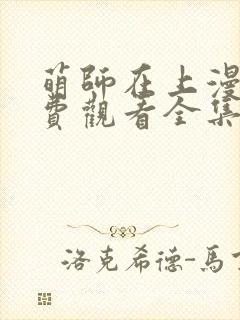 萌師在上漫
費觀看全集
洛克希德-馬